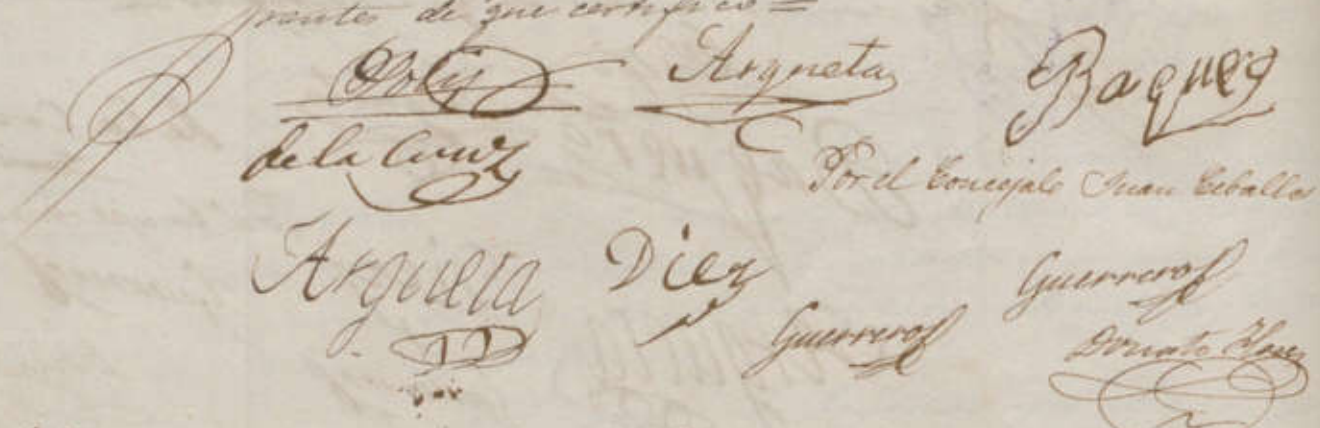 de que certifico =
Solis Argueta Baquez
de la Cruz
Por el Concejal Juan Ceballos
Argueta Diez
Guerrero
Guerrero
Donato